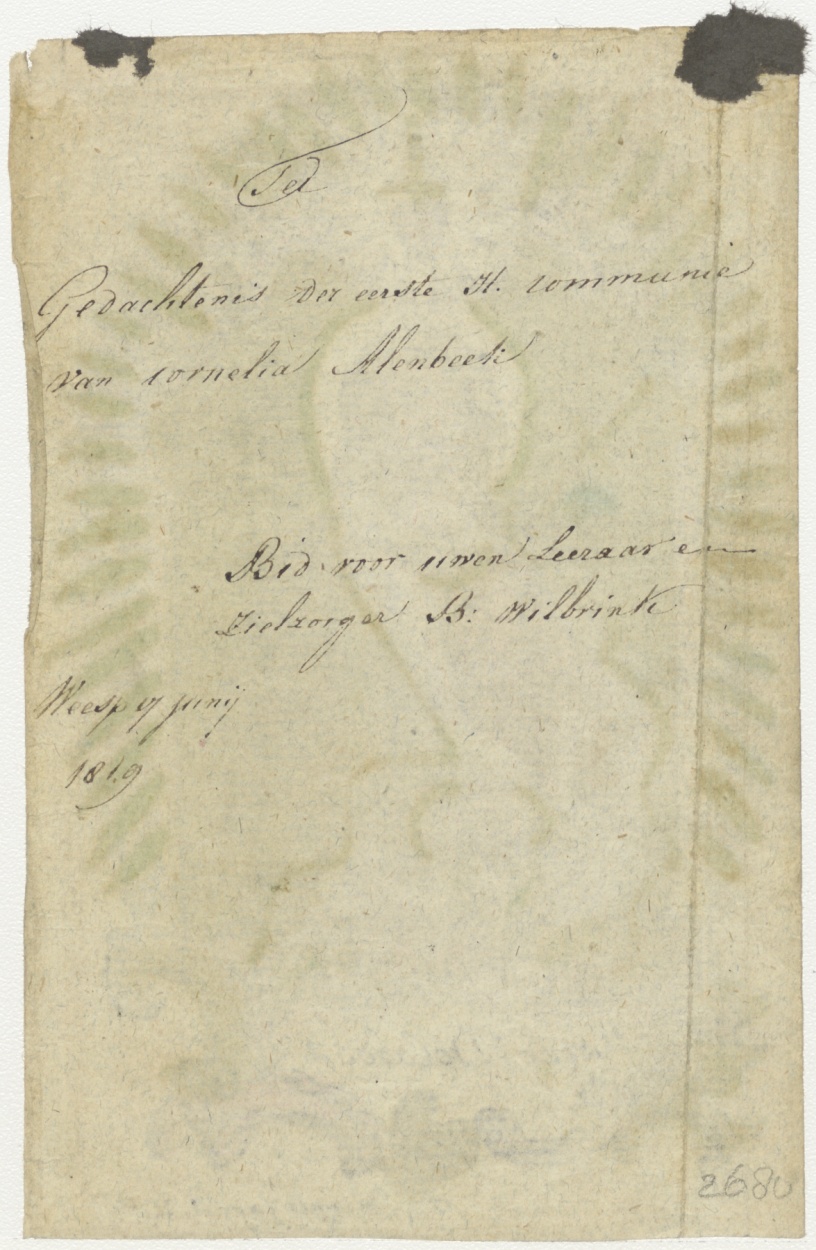 Ter
Gedachtenis der eerste H. communie
van cornelia Alenbeek
Bid voor uwen Leeraar en
Zielzorger B: Wilbrink
Weesp 17 junij
1819
2680